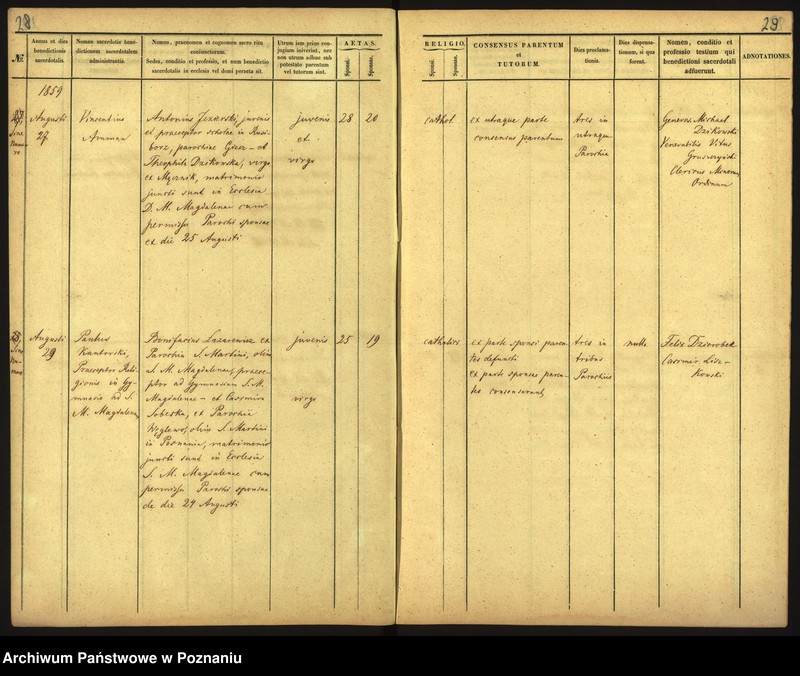 28
29
№
Annus et dies
benedictionis
sacerdotalis.
Nomen sacerdotis bene-
dictionem sacerdotalem
administrantis.
Nomen, praenomen et cognomen sacro ritu
conjunctorum.
Sedes, conditio et professio, et num benedictio
sacerdotalis in ecclesia vel domi peracta sit.
Utrum jam prius con-
jugium iniverint, nec
non utrum adhuc sub
potestate parentum
vel tutorum sint.
AETAS.
Sponsi.
Sponsae.
RELIGIO.
Sponsi.
Sponsae.
CONSENSUS PARENTUM
et
TUTORUM.
Dies proclama-
tionis.
Dies dispensa-
tionis, si qua
foret.
Nomen, conditio et
professio testium qui
benedictioni sacerdotali
adfuerunt.
ADNOTATIONES.
1859
Augusti
27.
Vincentius
Antonius Jezierski, juvenis
et praeceptor scholae in Raci-
borz, parochiae Gozz - et
Theophila Dzikowska, virgo
ex Mącznik, matrimonio
juncti sunt in Ecclesia
D. M. Magdalenae cum
permissu Parochi sponsae
ex die 25 Augusti
juvenis
et
virgo
28
20
cathol
ex utraque parte
consensus parentum
tres in
utraque
Parochia
Generos. Michael
Dzikowski
Venerabilis Vitus
Gruszczyński
Clericus Minorum
Ordinum
Augusti
29
Paulus
Kantorski,
Praeceptor Reli-
gionis in Gy-
mnasio ad S.
M. Magdalenam
Bonifacius Lazarewicz ex
Parochia S. Martini, olim
S. M. Magdalenae, praece-
ptor ad Gymnasium S. M.
Magdalenae - et Casimira
Sobeska, ex Parochia
Węglewo, olim S. Martini
in Posnania, matrimonio
juncti sunt in Ecclesia
S. M. Magdalenae cum
permissu Parochi sponsae
de die 24 Augusti
juvenis
virgo
25
19
catholici
ex parte sponsi paren-
tes defuncti
ex parte sponsae paren-
tes consenserunt
tres in
tribus
Parochiis
nulla
Felix Dziorobek
Casimir Lisz-
kowski
Archiwum Państwowe w Poznaniu